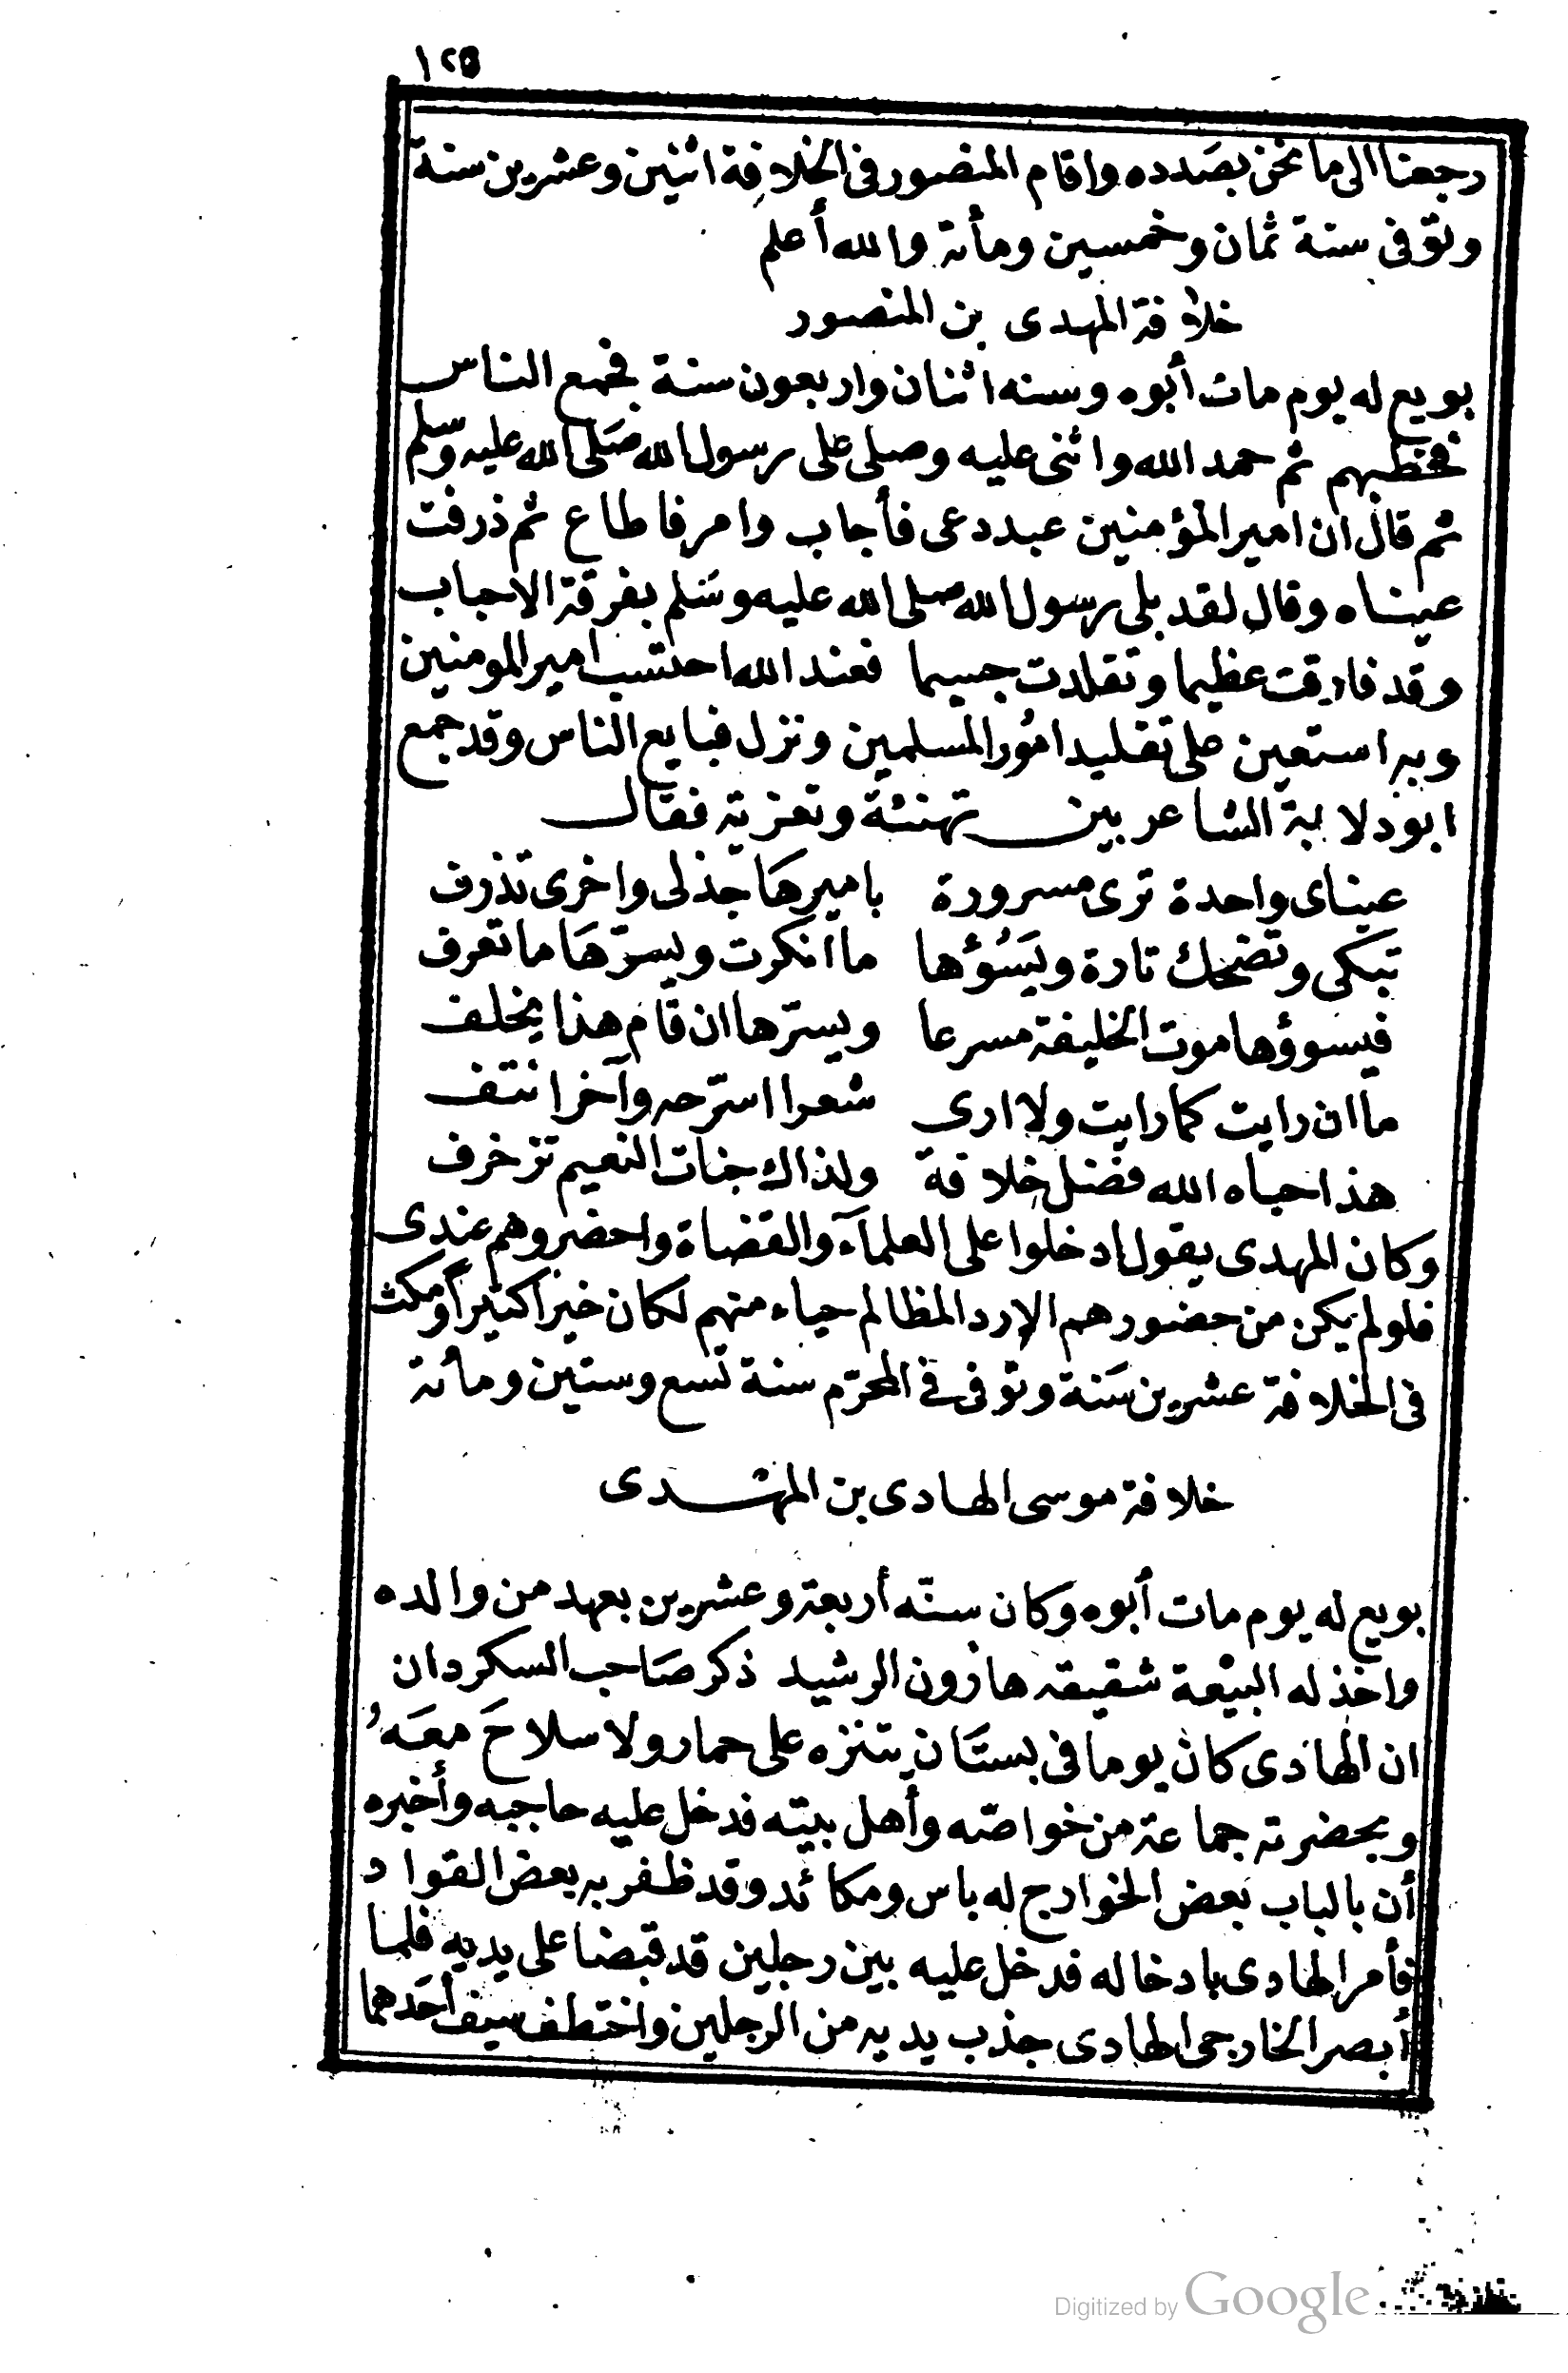 ١٢٥
رجعنا الى ما نحن بصَدده واقام المنصور فى الخلافة اثنين وعشرين سنة
وتوفى سنة ثمان وخمسين ومأته والله أعلم
خلافة المهدى بن المنصور
بويع له يوم مات أبوه وسنه اثنان واربعون سنة فجمع الناس
فخطبهم ثم حمد الله واثنى عليه وصلى على رسول الله صَلى الله عليه وسلم
ثم قال ان امير المؤمنين عبد دعى فأجاب وامر فاطاع ثم ذرفت
عيناه وقال لقد بلى رسول الله صلى الله عليه وسَلم بفرقة الاحباب
وقد فارقت عظيما وتقلدت جسيما فعند الله احتسب امير المومنين
وبه استعين على تقليد امُور المسلمين ونزل فبايع الناس وقد جمع
ابودلامة الشاعر بين تهنئة وتعزية فقال
عيناى واحدة ترى مسرورة باميرهَا جذلى واخرى تذرف
تبكى وتضحك تارة ويَسُؤها ما انكرت ويسرّهَا ما تعرف
فيسوؤها موت الخليفة مسرعا ويسرّها ان قام هذا يخلف
ما ان رايت كما رايت ولا ارى شعرا اسرّحه وآخر انتف
هذا حباه الله فضل خلافة ولذاك جنات النعيم تزخرف
وكان المهدى يقول ادخلوا على العلمآء والقضاة واحضروهم عندى
فلو لم يكن من حضورهم الا رد المظالم حياء منهم لكان خيرا كثيراً ومكث
فى الخلافة عشرين سَنة وتوفى فى المحرّم سنة تسع وستين ومأته
خلافة موسى الهادى بن المهدى
بويع له يوم مات أبوه وكان سنّه أربعة وعشرين بعهد من والده
واخذ له البيْعة شقيقه هارون الرشيد ذكر صَاحب السكردان
ان الهادى كان يوما فى بستَان يتنزه على حمار ولا سلاحَ معَهُ
وبحضرته جماعة من خواصّه وأهل بيته فدخل عليه حاجبه وأخبره
أن بالباب بعض الخوارج له باس ومكائد وقد ظفر به بعض القواد
فأمر الهادى بادخاله فدخل عليه بين رجلين قد قبضا على يديه فلما
أبصر الخارجى الهادى جذب يديه من الرجلين واختطف سيف أحَدهما
Digitized by Google